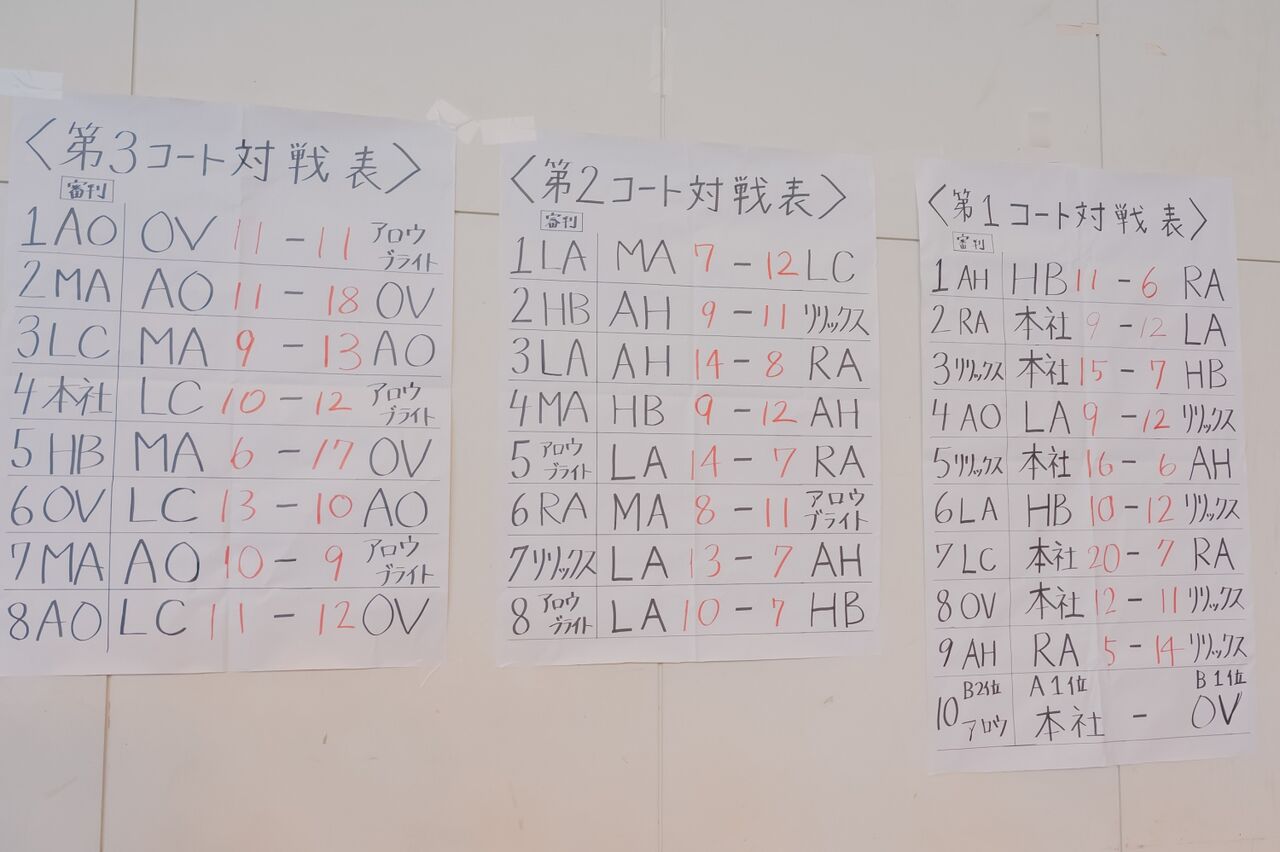 〈第3コート対戦表〉
審刊
1 AO OV 11 - 11 アロウブライト
2 MA AO 11 - 18 OV
3 LC MA 9 - 13 AO
4 本社 LC 10 - 12 アロウブライト
5 HB MA 6 - 17 OV
6 OV LC 13 - 10 AO
7 MA AO 10 - 9 アロウブライト
8 AO LC 11 - 12 OV
〈第2コート対戦表〉
審刊
1 LA MA 7 - 12 LC
2 HB AH 9 - 11 リリックス
3 LA AH 14 - 8 RA
4 MA HB 9 - 12 AH
5 アロウブライト LA 14 - 7 RA
6 RA MA 8 - 11 アロウブライト
7 リリックス LA 13 - 7 AH
8 アロウブライト LA 10 - 7 HB
〈第1コート対戦表〉
審刊
1 AH HB 11 - 6 RA
2 RA 本社 9 - 12 LA
3 リリックス 本社 15 - 7 HB
4 AO LA 9 - 12 リリックス
5 リリックス 本社 16 - 6 AH
6 LA HB 10 - 12 リリックス
7 LC 本社 20 - 7 RA
8 OV 本社 12 - 11 リリックス
9 AH RA 5 - 14 リリックス
B2位 A1位 B1位
10 アロウ 本社 - OV